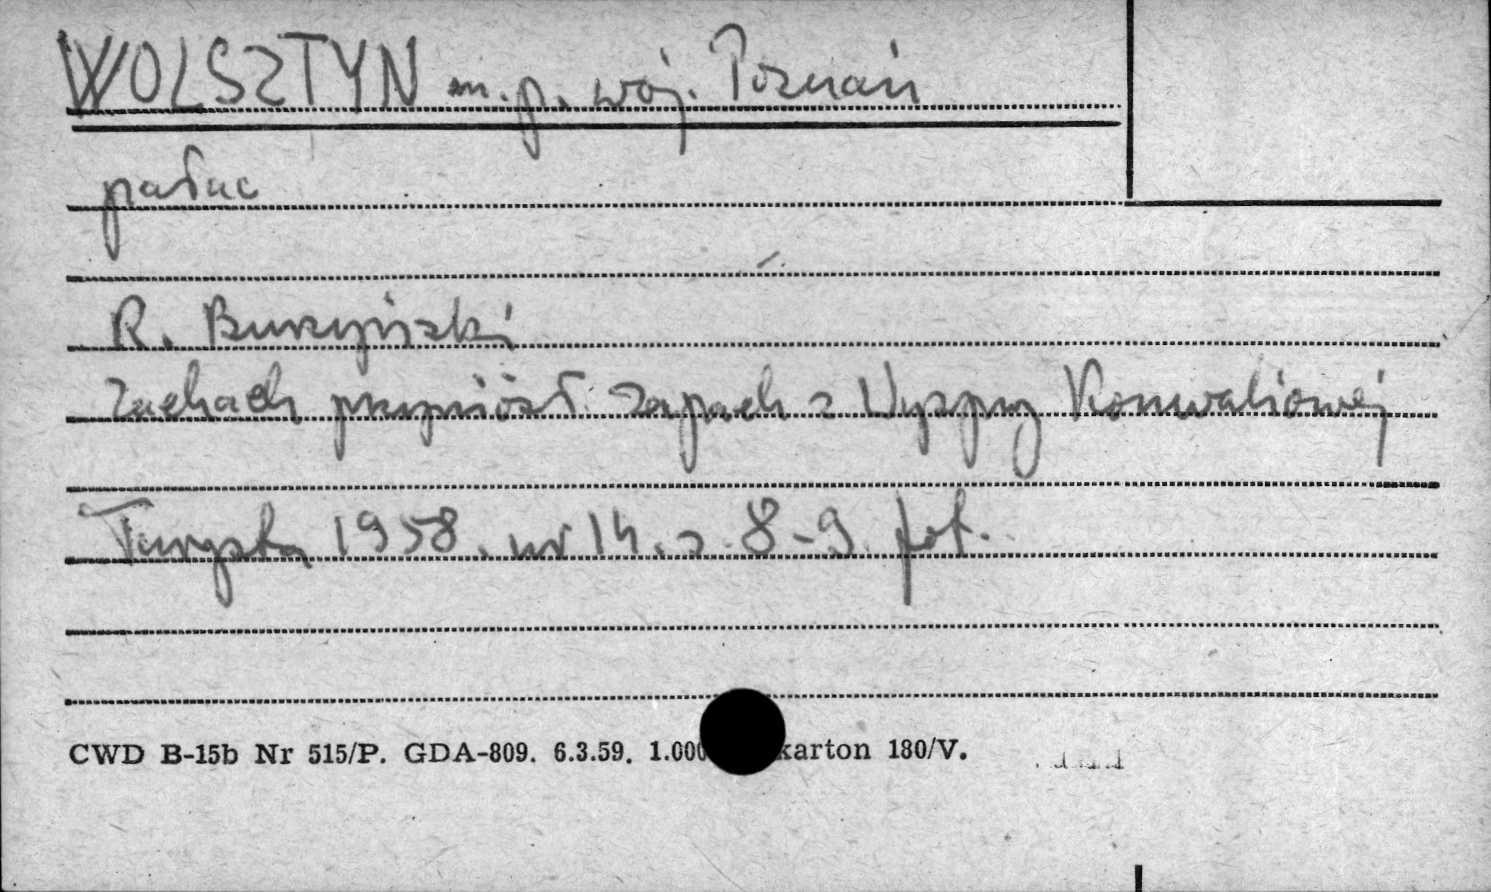 WOLSZTYN m. p. woj. Poznań
pałac
R. Burzyński
Zachach przyniósł zapach z Wyspy Konwaliowej
Turysta 1958. nr 14. s. 8-9. fot.
CWD B-15b Nr 515/P. GDA-809. 6.3.59. 1.000 karton 180/V.